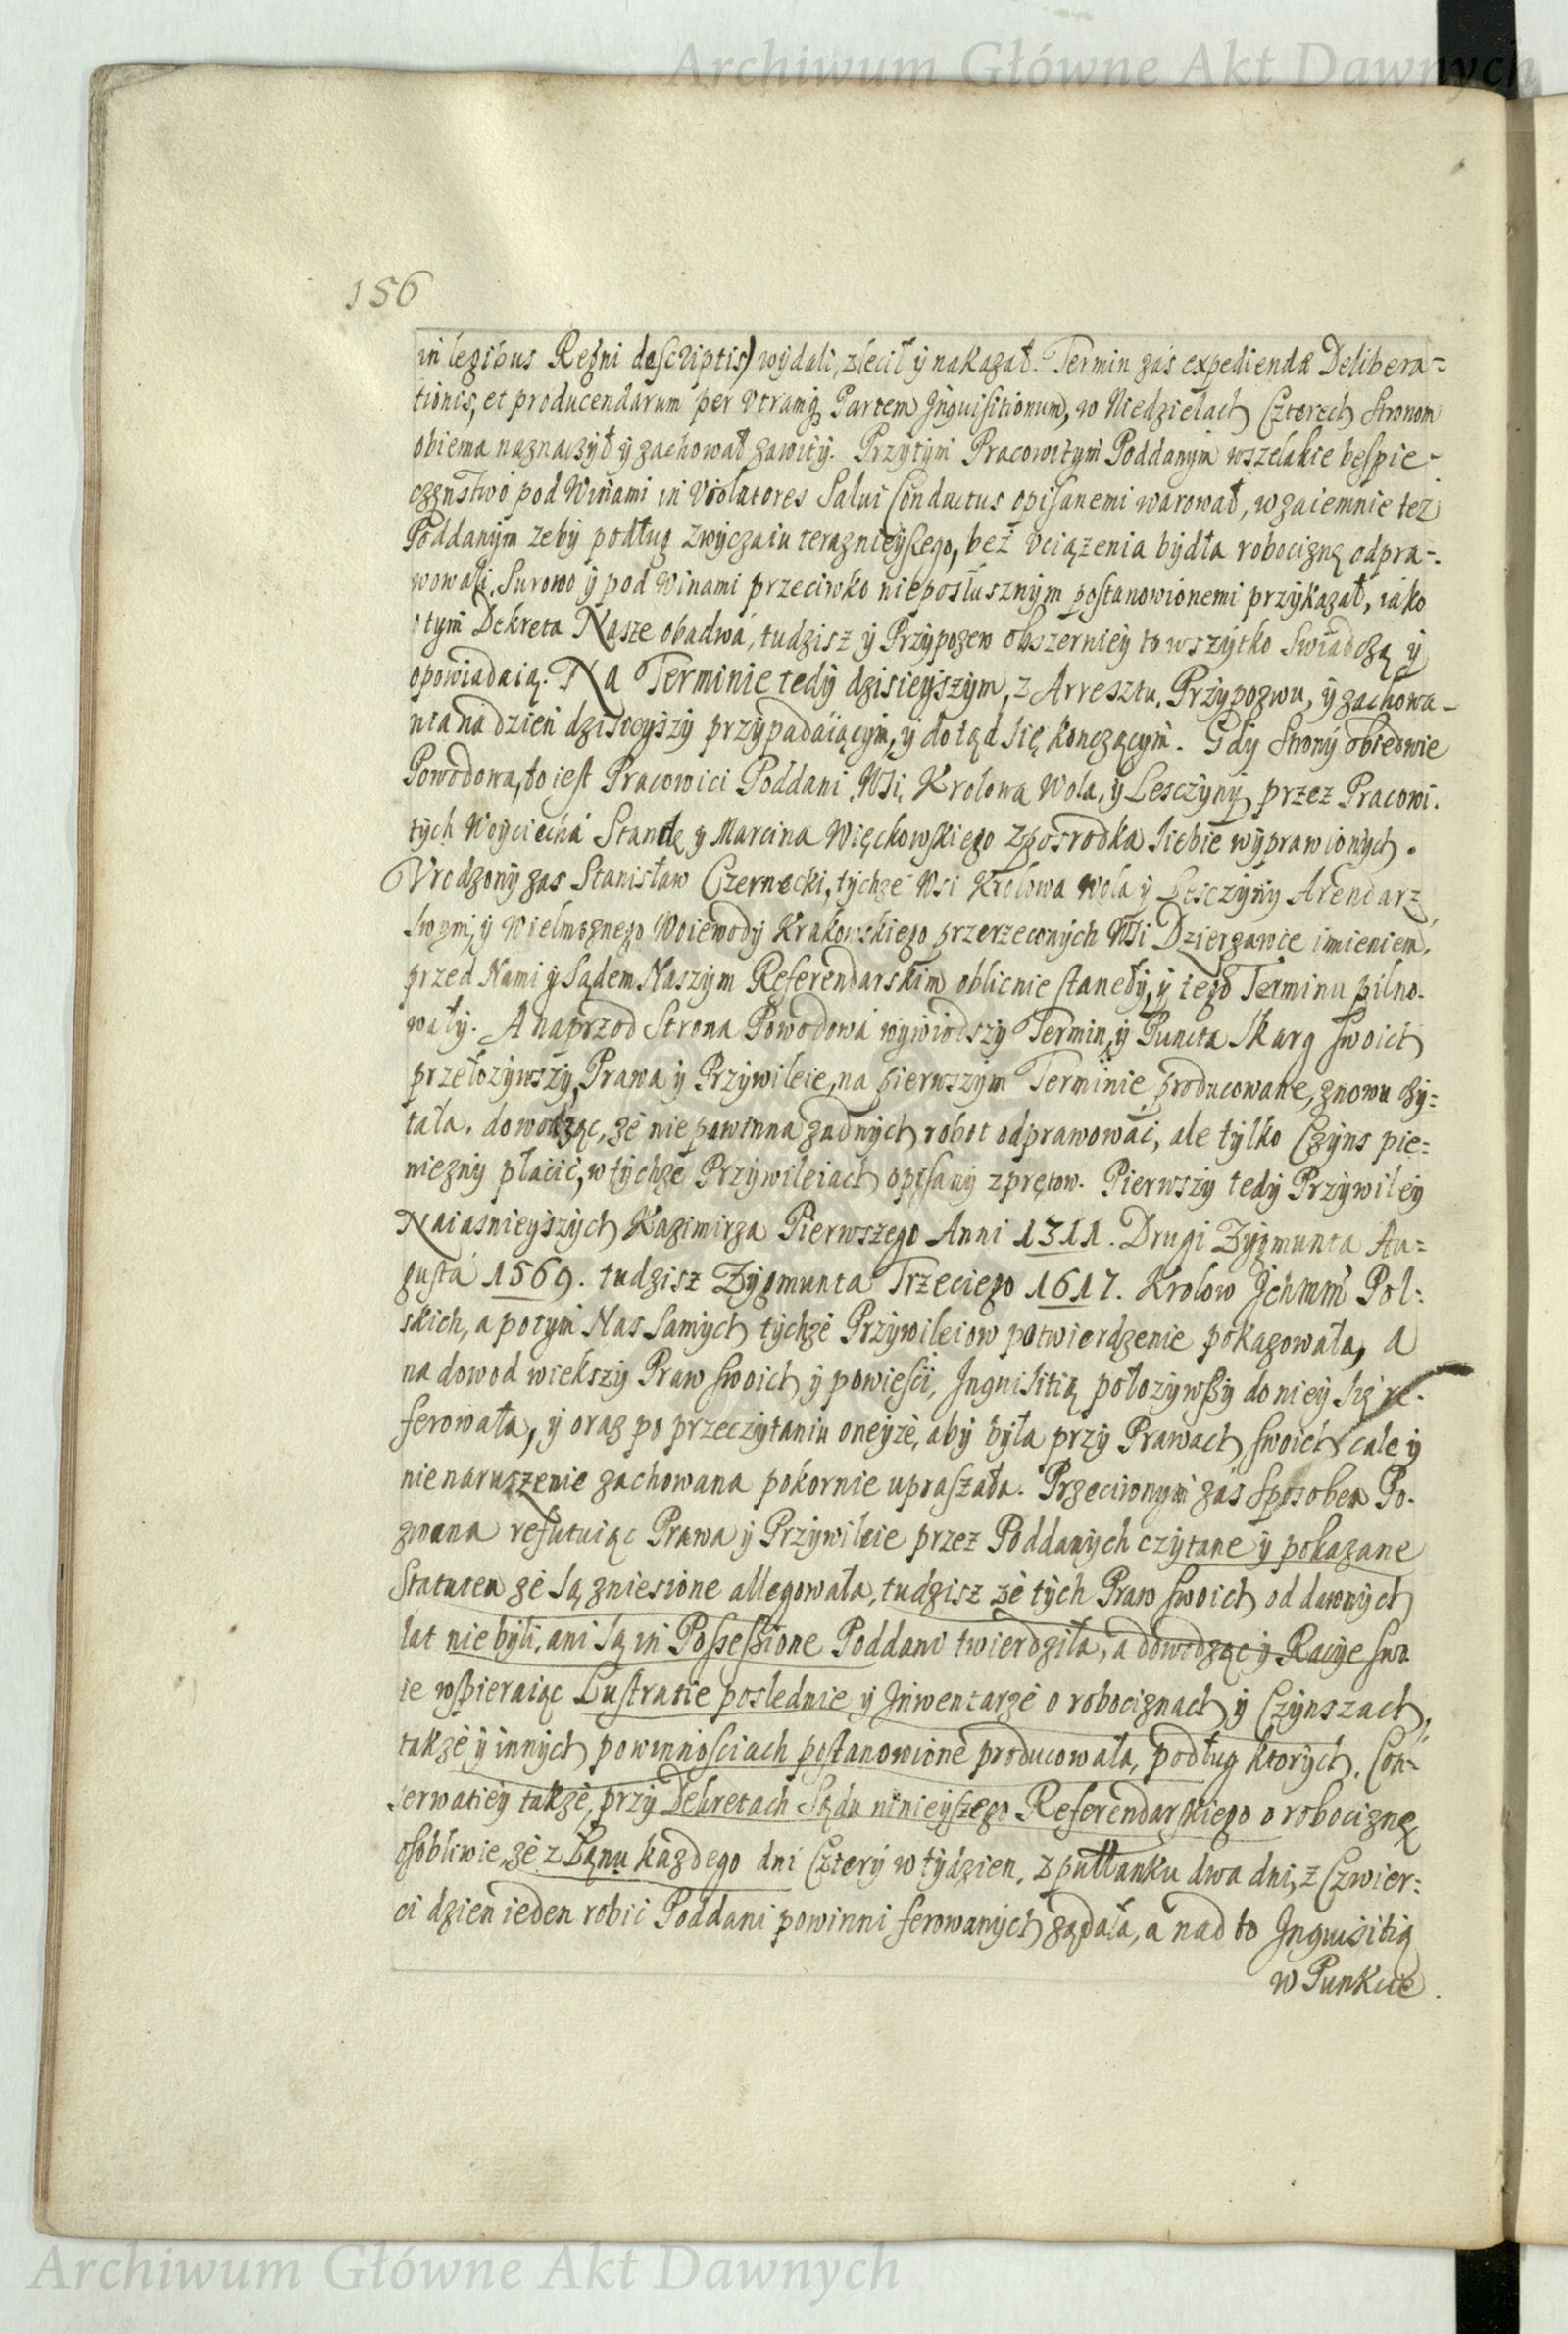 Archiwum Główne Akt Dawnych
156
in legibus Regni descriptis) wydali, zlecił ÿ nakazał. Termin zaś expediendæ Delibera=
tionis, et producendarum per Vtramq; Partem Inquisitionum, w Niedzielach Czterech Stronom
obiema naznaczÿł ÿ zachował zawitÿ. Przÿtÿm Pracowitÿm Poddanÿm wszelakie bespie=
częnstwo pod Winami in Violatores Salvi Conductus opisanemi warował, wzaiemnie też
Poddanÿm zebÿ podług zwÿczaiu teraznieÿszego, bez vciązenia bÿdła robociznę odpra=
wowali. Surowo ÿ pod Winami przeciwko nieposłusznÿm postanowionemi przÿkazał, iáko
o tÿm Dekreta Nasze obadwá, tudzisz ÿ Przÿpozew obszernieÿ to wszÿtko swiadczą ÿ
opowiadaią. Na Terminie tedÿ dzisieÿszÿm, z Arresztu, Przÿpozwu, ÿ zachowa-
nia na dzien dzisieÿszÿ przÿpadaiącÿm, ÿ dotąd się konczącÿm. Gdÿ Stronÿ obiedwie
Powodowa, to iest Pracowici Poddani Wsi, Krolowa Wola, ÿ Lesczÿnÿ przez Pracowi.
tÿch Woÿciechá Stanclę ÿ Marcina Więckowskiego zposrodka siebie wÿprawionÿch.
Vrodzonÿ zas Stanisław Czernecki, tÿchze Wsi Krolowa Wola ÿ Lesczÿnÿ Arendarz,
swÿm, ÿ Wielmoznego Woiewodÿ Krakowskiego przerzeconÿch Wsi Dzierzawce imieniem,
przed Nami ÿ Sądem Naszÿm Referendarskim oblicnie stanełÿ, ÿ tego Terminu pilno-
wałÿ. A naprzod Strona Powodowá wÿwiodszÿ Termin, ÿ Puncta Skarg swoich
przełozÿwszÿ, Prawa ÿ Przÿwileie, na pierwszÿm Terminie producowane, znowu czÿ=
tała. dowodząc, że nie powinna zadnÿch robot odprawować, ale tÿlko Czÿns pie=
nieznÿ płacić, w tÿchże Przÿwileiach opisanÿ z prętow. Pierwszÿ tedÿ Przÿwileÿ
Naiasnieÿszÿch Kazimirza Pierwszego Anni 1311. Drugi Zÿgmunta Au=
gusta 1569. tudzisz Zÿgmunta Trzeciego 1617. Krolow Ichmm Pol=
skich, a potÿm Nas Samÿch tÿchże Przÿwileiow potwierdzenie pokazowała, a
na dowod wiekszÿ Praw swoich ÿ powieści, Inquisitią położÿwszÿ do nieÿ się re-
ferowała, ÿ oraz po przeczÿtaniu oneÿże, abÿ bÿła przÿ Prawach swoich cale ÿ
nienaruszenie zachowana pokornie upraszała. Przeciwnÿm zás Sposobem Po-
zwana refutuiąc Prawa ÿ Przÿwileie przez Poddanÿch czÿtane ÿ pokazane
Statutem że są zniesione allegowała, tudzisz że tÿch Praw swoich od dawnÿch
lat nie bÿli, ani są in Possessione Poddani twierdziła, a dowodząc ÿ Racÿe swo
ie wspieraiąc Lustratie poslednie ÿ Inwentarze o robociznach ÿ Czÿnszach,
także ÿ innÿch powinnościach postanowione producowała, podług ktorÿch, Con=
serwatieÿ także, przÿ Dekretach Sądu ninieÿszego Referendarskiego o robociznę
osobliwie, że z Łanu każdego dni Cztery w tÿdzien, z pułłanku dwa dni, z Czwier=
ci dzien ieden robić Poddani powinni ferowanÿch żądała, a nad to Inquisitią
w Punkcie.
Archiwum Główne Akt Dawnych